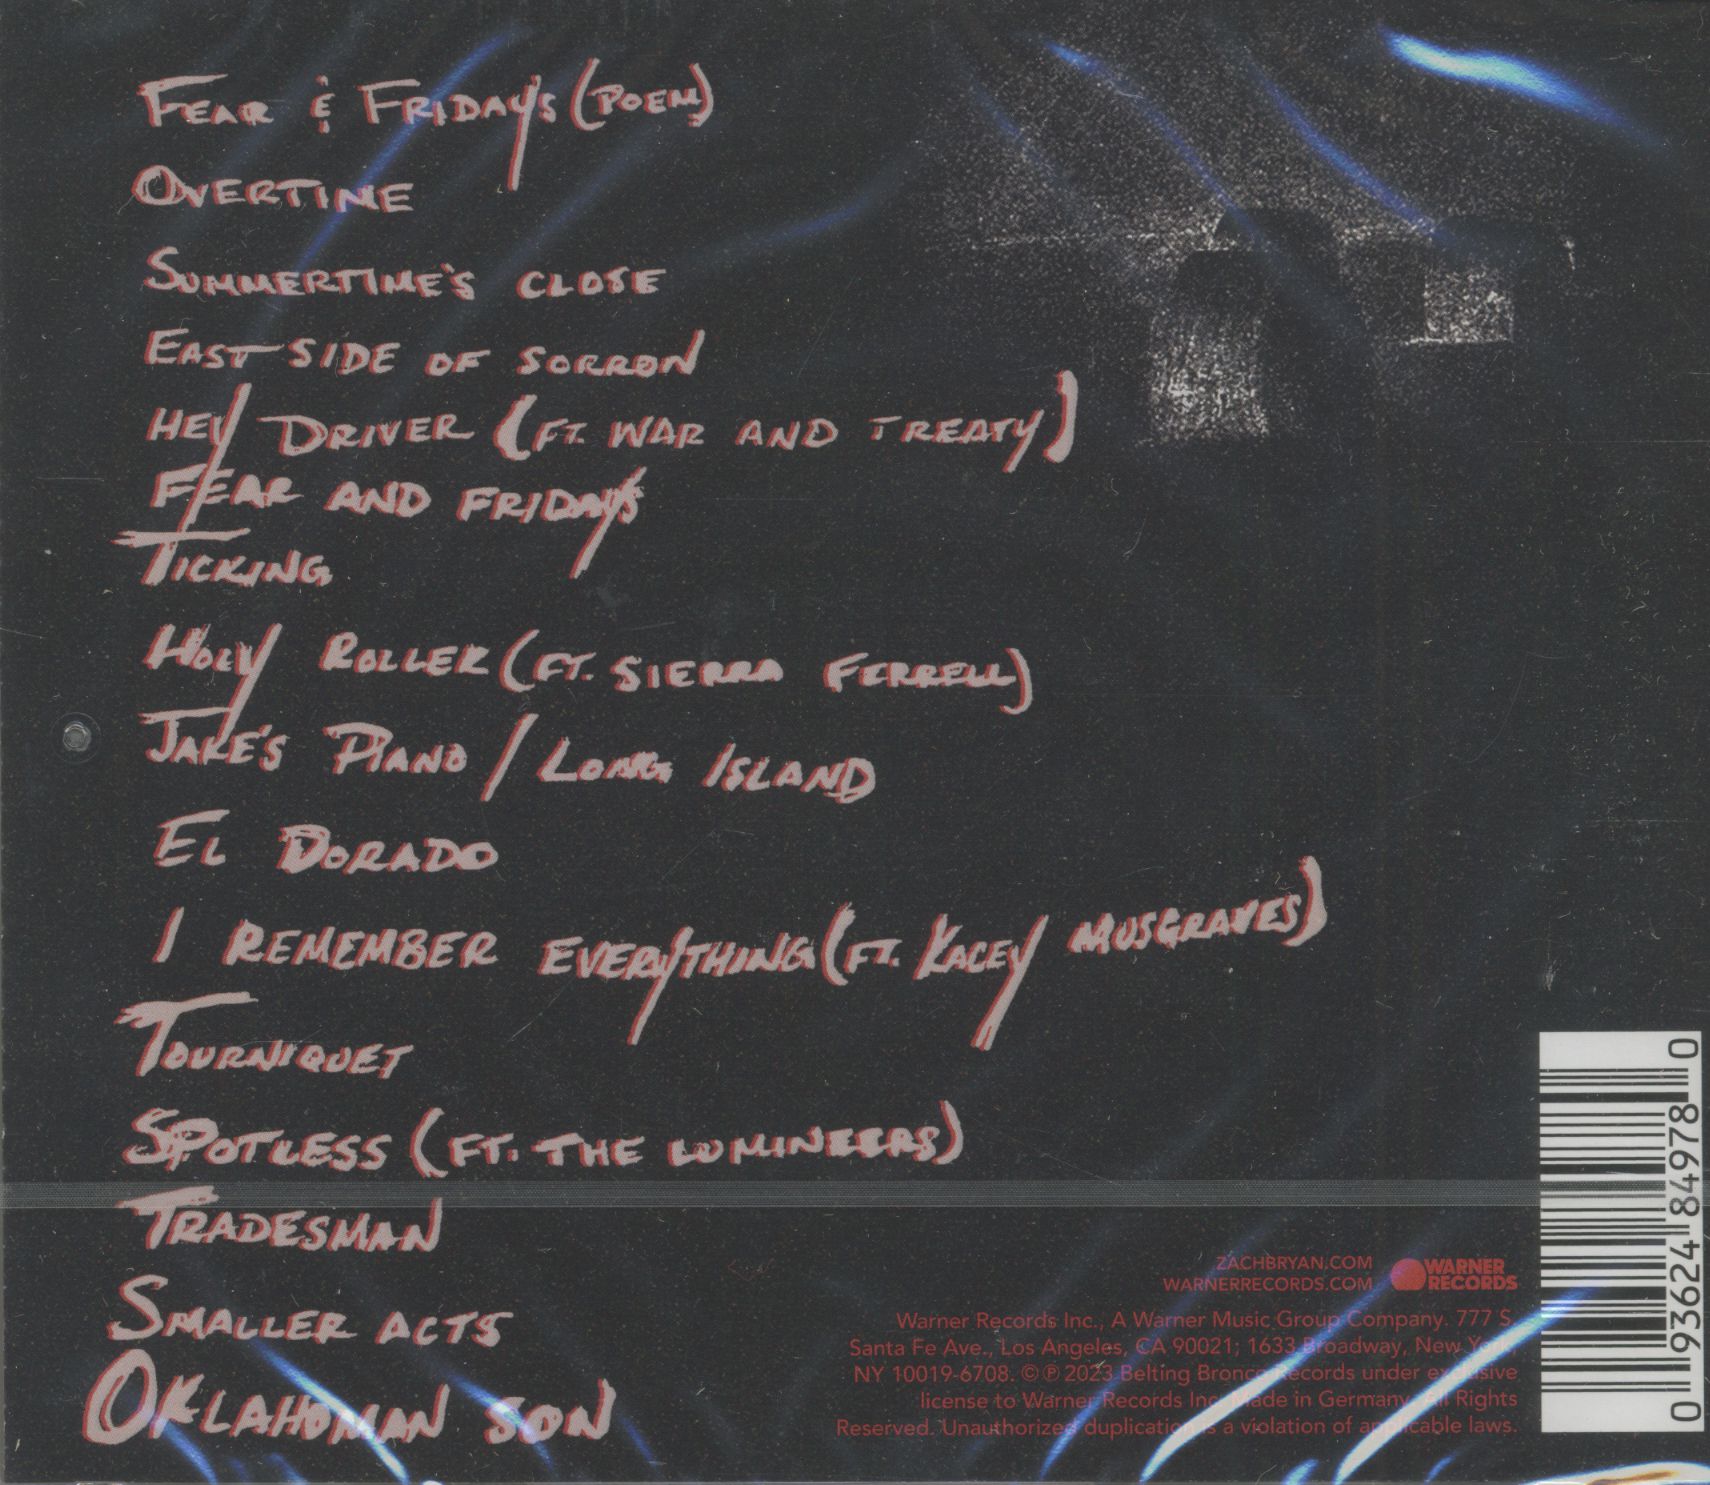 FEAR & FRIDAY'S (POEM)
OVERTIME
SUMMERTIME'S CLOSE
EAST SIDE OF SORROW
HEY DRIVER (FT. WAR AND TREATY)
FEAR AND FRIDAYS
TICKING
HOLY ROLLER (FT. SIERRA FERRELL)
JAKE'S PIANO / LONG ISLAND
EL DORADO
I REMEMBER EVERYTHING (FT. KACEY MUSGRAVES)
TOURNIQUET
SPOTLESS (FT. THE LUMINEERS)
TRADESMAN
SMALLER ACTS
OKLAHOMAN SON
ZACHBRYAN.COM
WARNERRECORDS.COM
WARNER
RECORDS
Warner Records Inc., A Warner Music Group Company. 777 S.
Santa Fe Ave., Los Angeles, CA 90021; 1633 Broadway, New York,
NY 10019-6708. ©℗ 2023 Belting Bronco Records under exclusive
license to Warner Records Inc. Made in Germany. All Rights
Reserved. Unauthorized duplication is a violation of applicable laws.
0 93624 84978 0